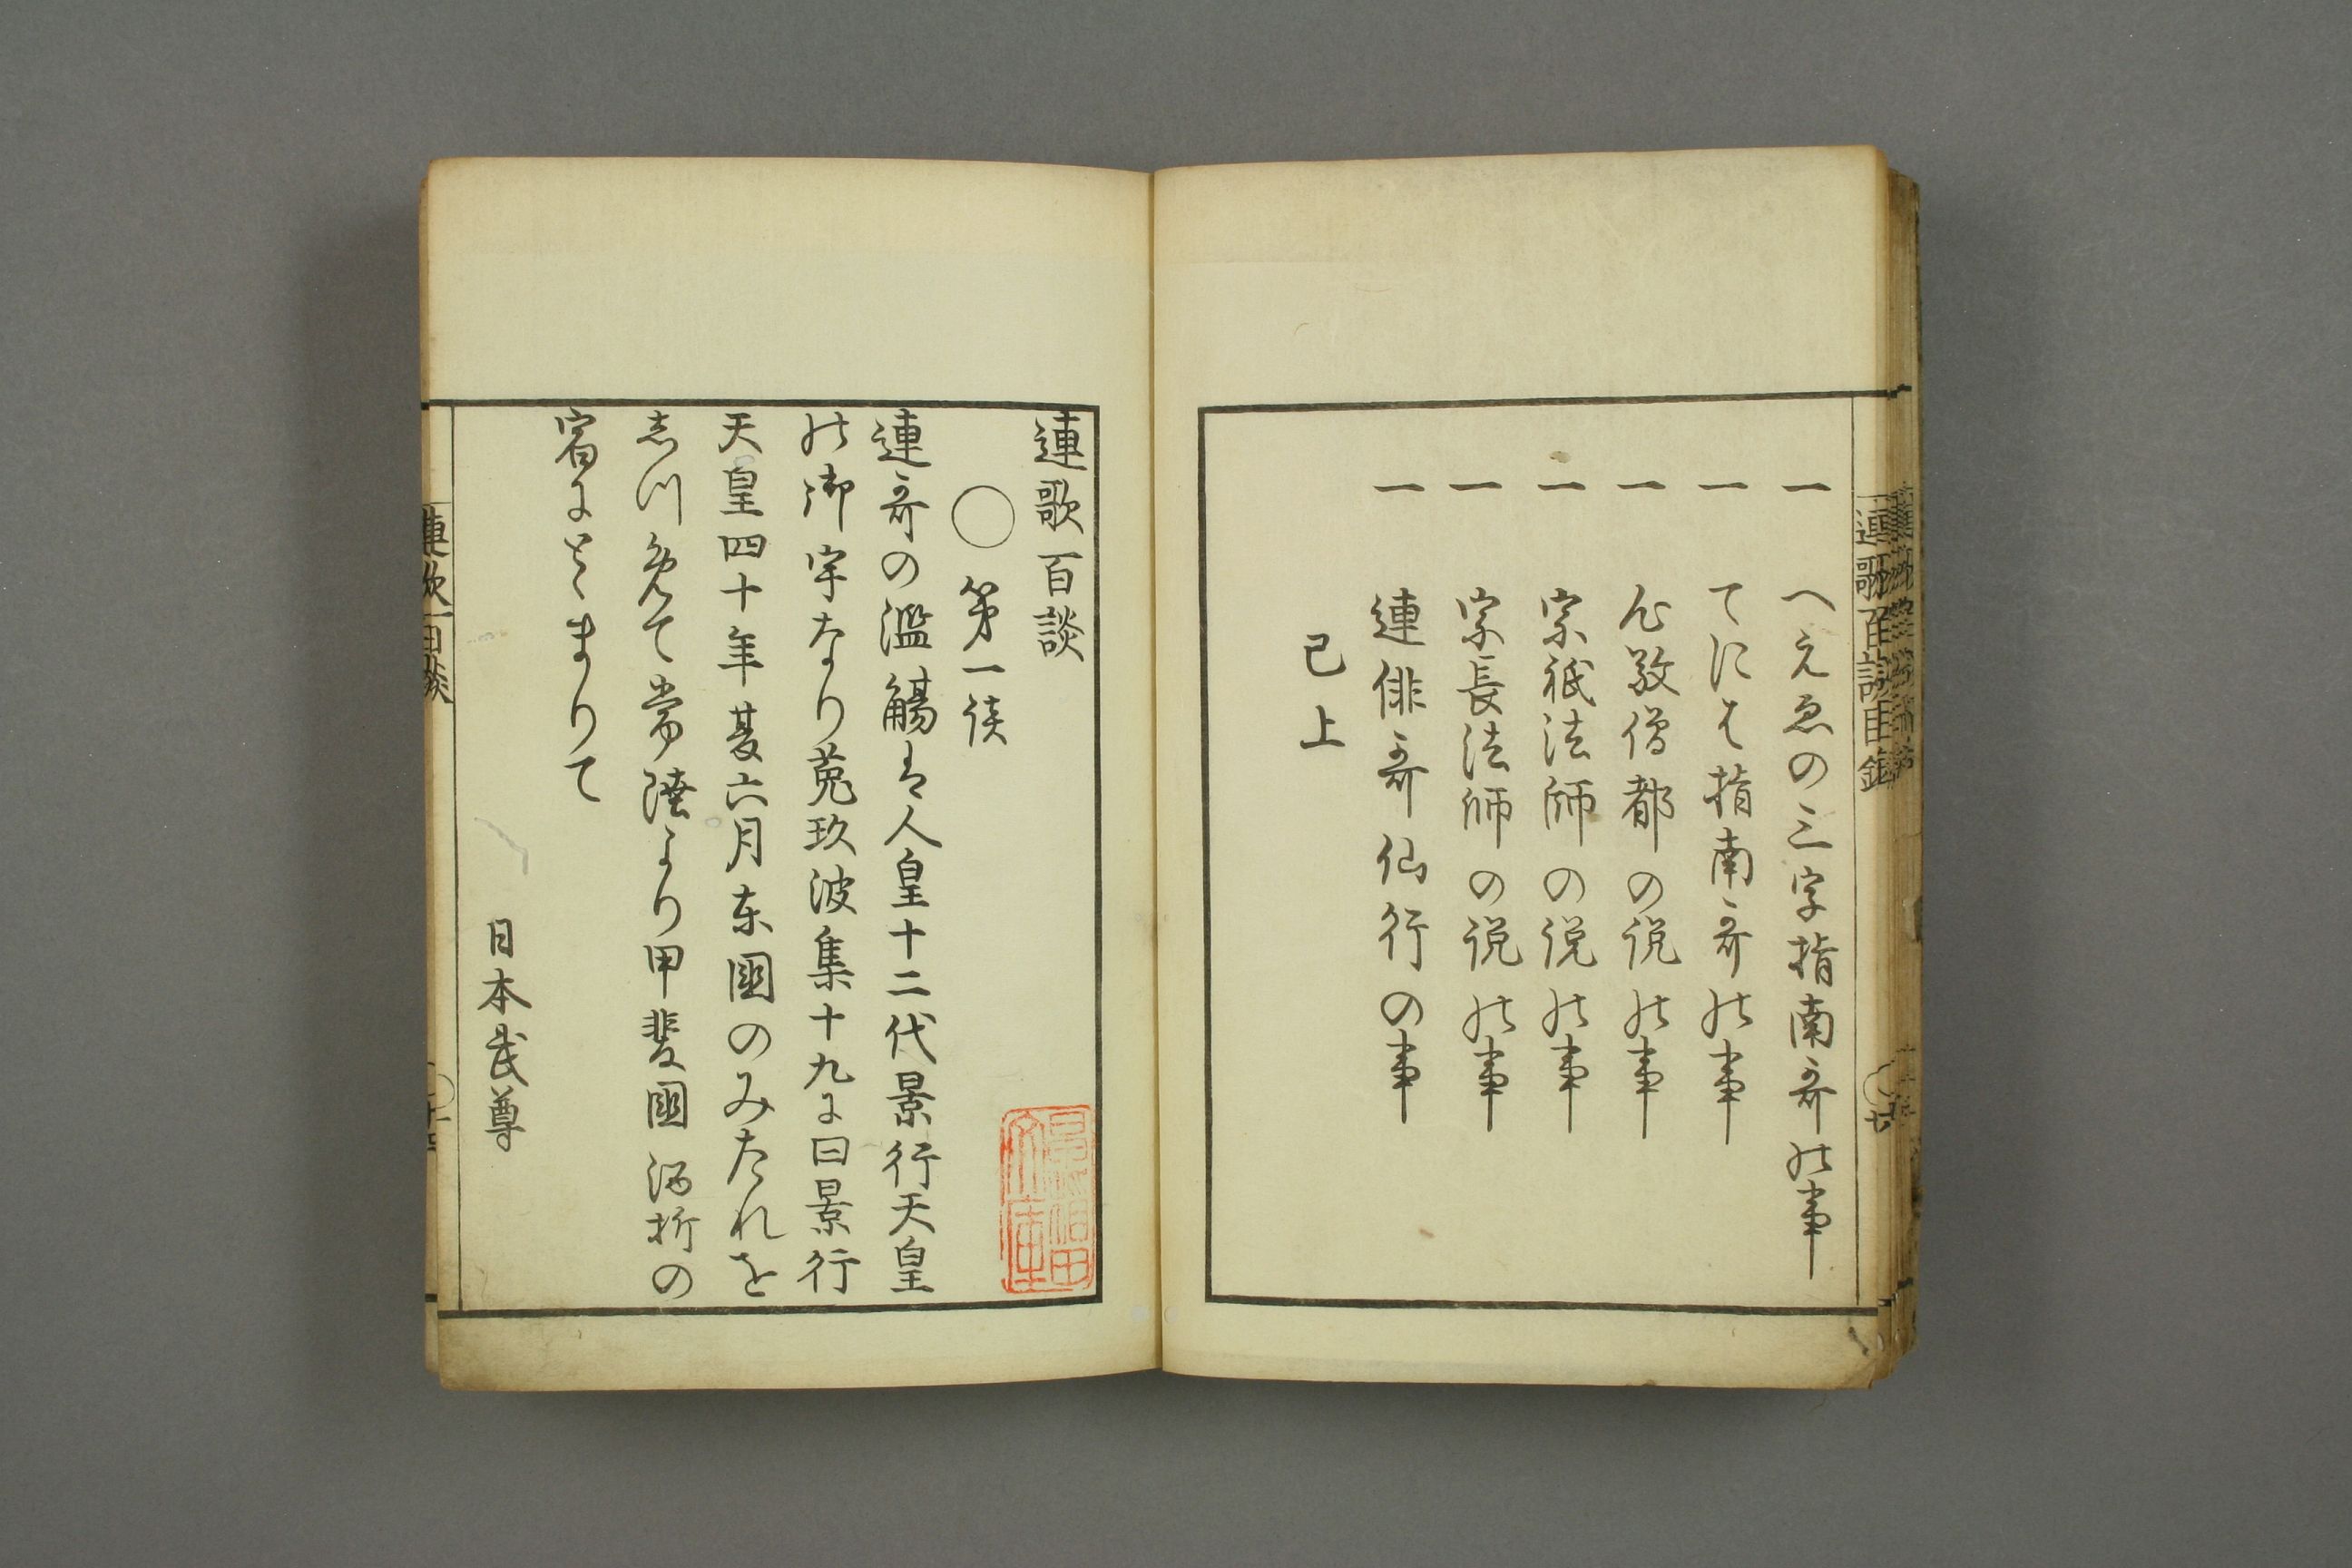 一 へえゑの三字指南哥の事
一 てにをは指南哥の事
一 心敬僧都の説の事
一 宗祇法師の説の事
一 宗長法師の説の事
一 連俳哥仙行の事
已上
連歌百談目録
連歌百談
○ 第一談
連哥の濫觴は人皇十二代景行天皇
の御宇なり菟玖波集十九に曰景行
天皇四十年夏六月東國のみたれを
志川免て常陸より甲斐國酒折の
宿にとゝまりて
日本武尊
連歌百談